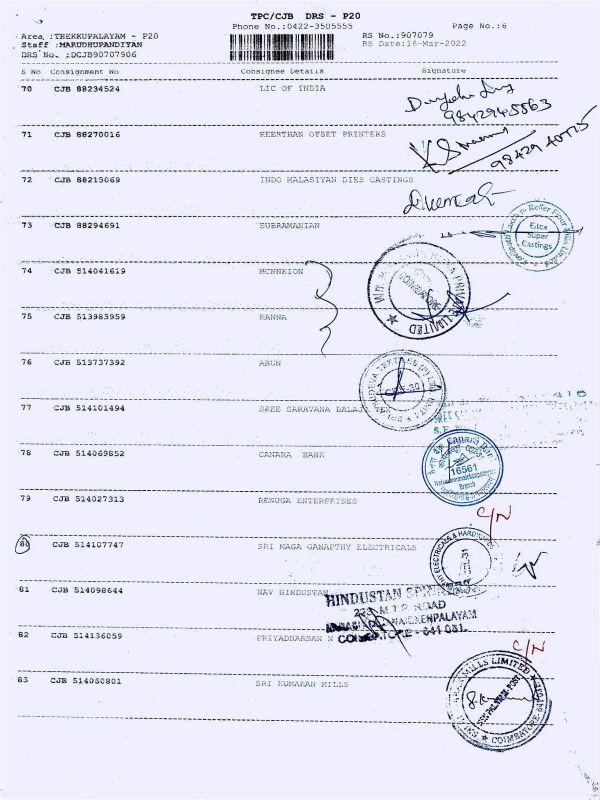 TPC/CJB DRS - P20
Phone No.:0422-3505555
Page No.:6
Area :THEKKUPALAYAM - P20
RS No.:907079
Staff :MARUDHUPANDIYAN
RS Date:16-Mar-2022
DRS No. :DCJB90707906
S No Consignment No Consignee Details Signature
70 CJB 88234524 LIC OF INDIA
9842945563
71 CJB 88270016 KEERTHAN OFSET PRINTERS
72 CJB 88215069 INDO MALASIYAN DIES CASTINGS
73 CJB 88294691 SUBRAMANIAN
Eltex
Super
Castings
74 CJB 514041619
PRIVATE LIMITED
75 CJB 513983959 KANNA
76 CJB 513737392 ARUN
77 CJB 514101494 SREE SARAVANA BALAJI TEX
78 CJB 514069852 CANARA BANK
Canara Bank
16561
Branch
79 CJB 514027313 RENUGA ENTERPRISES
C/N
80 CJB 514107747 SRI NAGA GANAPTHY ELECTRICALS
ELECTRICALS & HARDWARES
81 CJB 514098644 NAV HINDUSTAN
HINDUSTAN
ROAD
NAICKENPALAYAM
641 031.
82 CJB 514136059 PRIYADHARSAN N
C/N
83 CJB 514060801 SRI KUMARAN MILLS
MILLS LIMITED
COIMBATORE